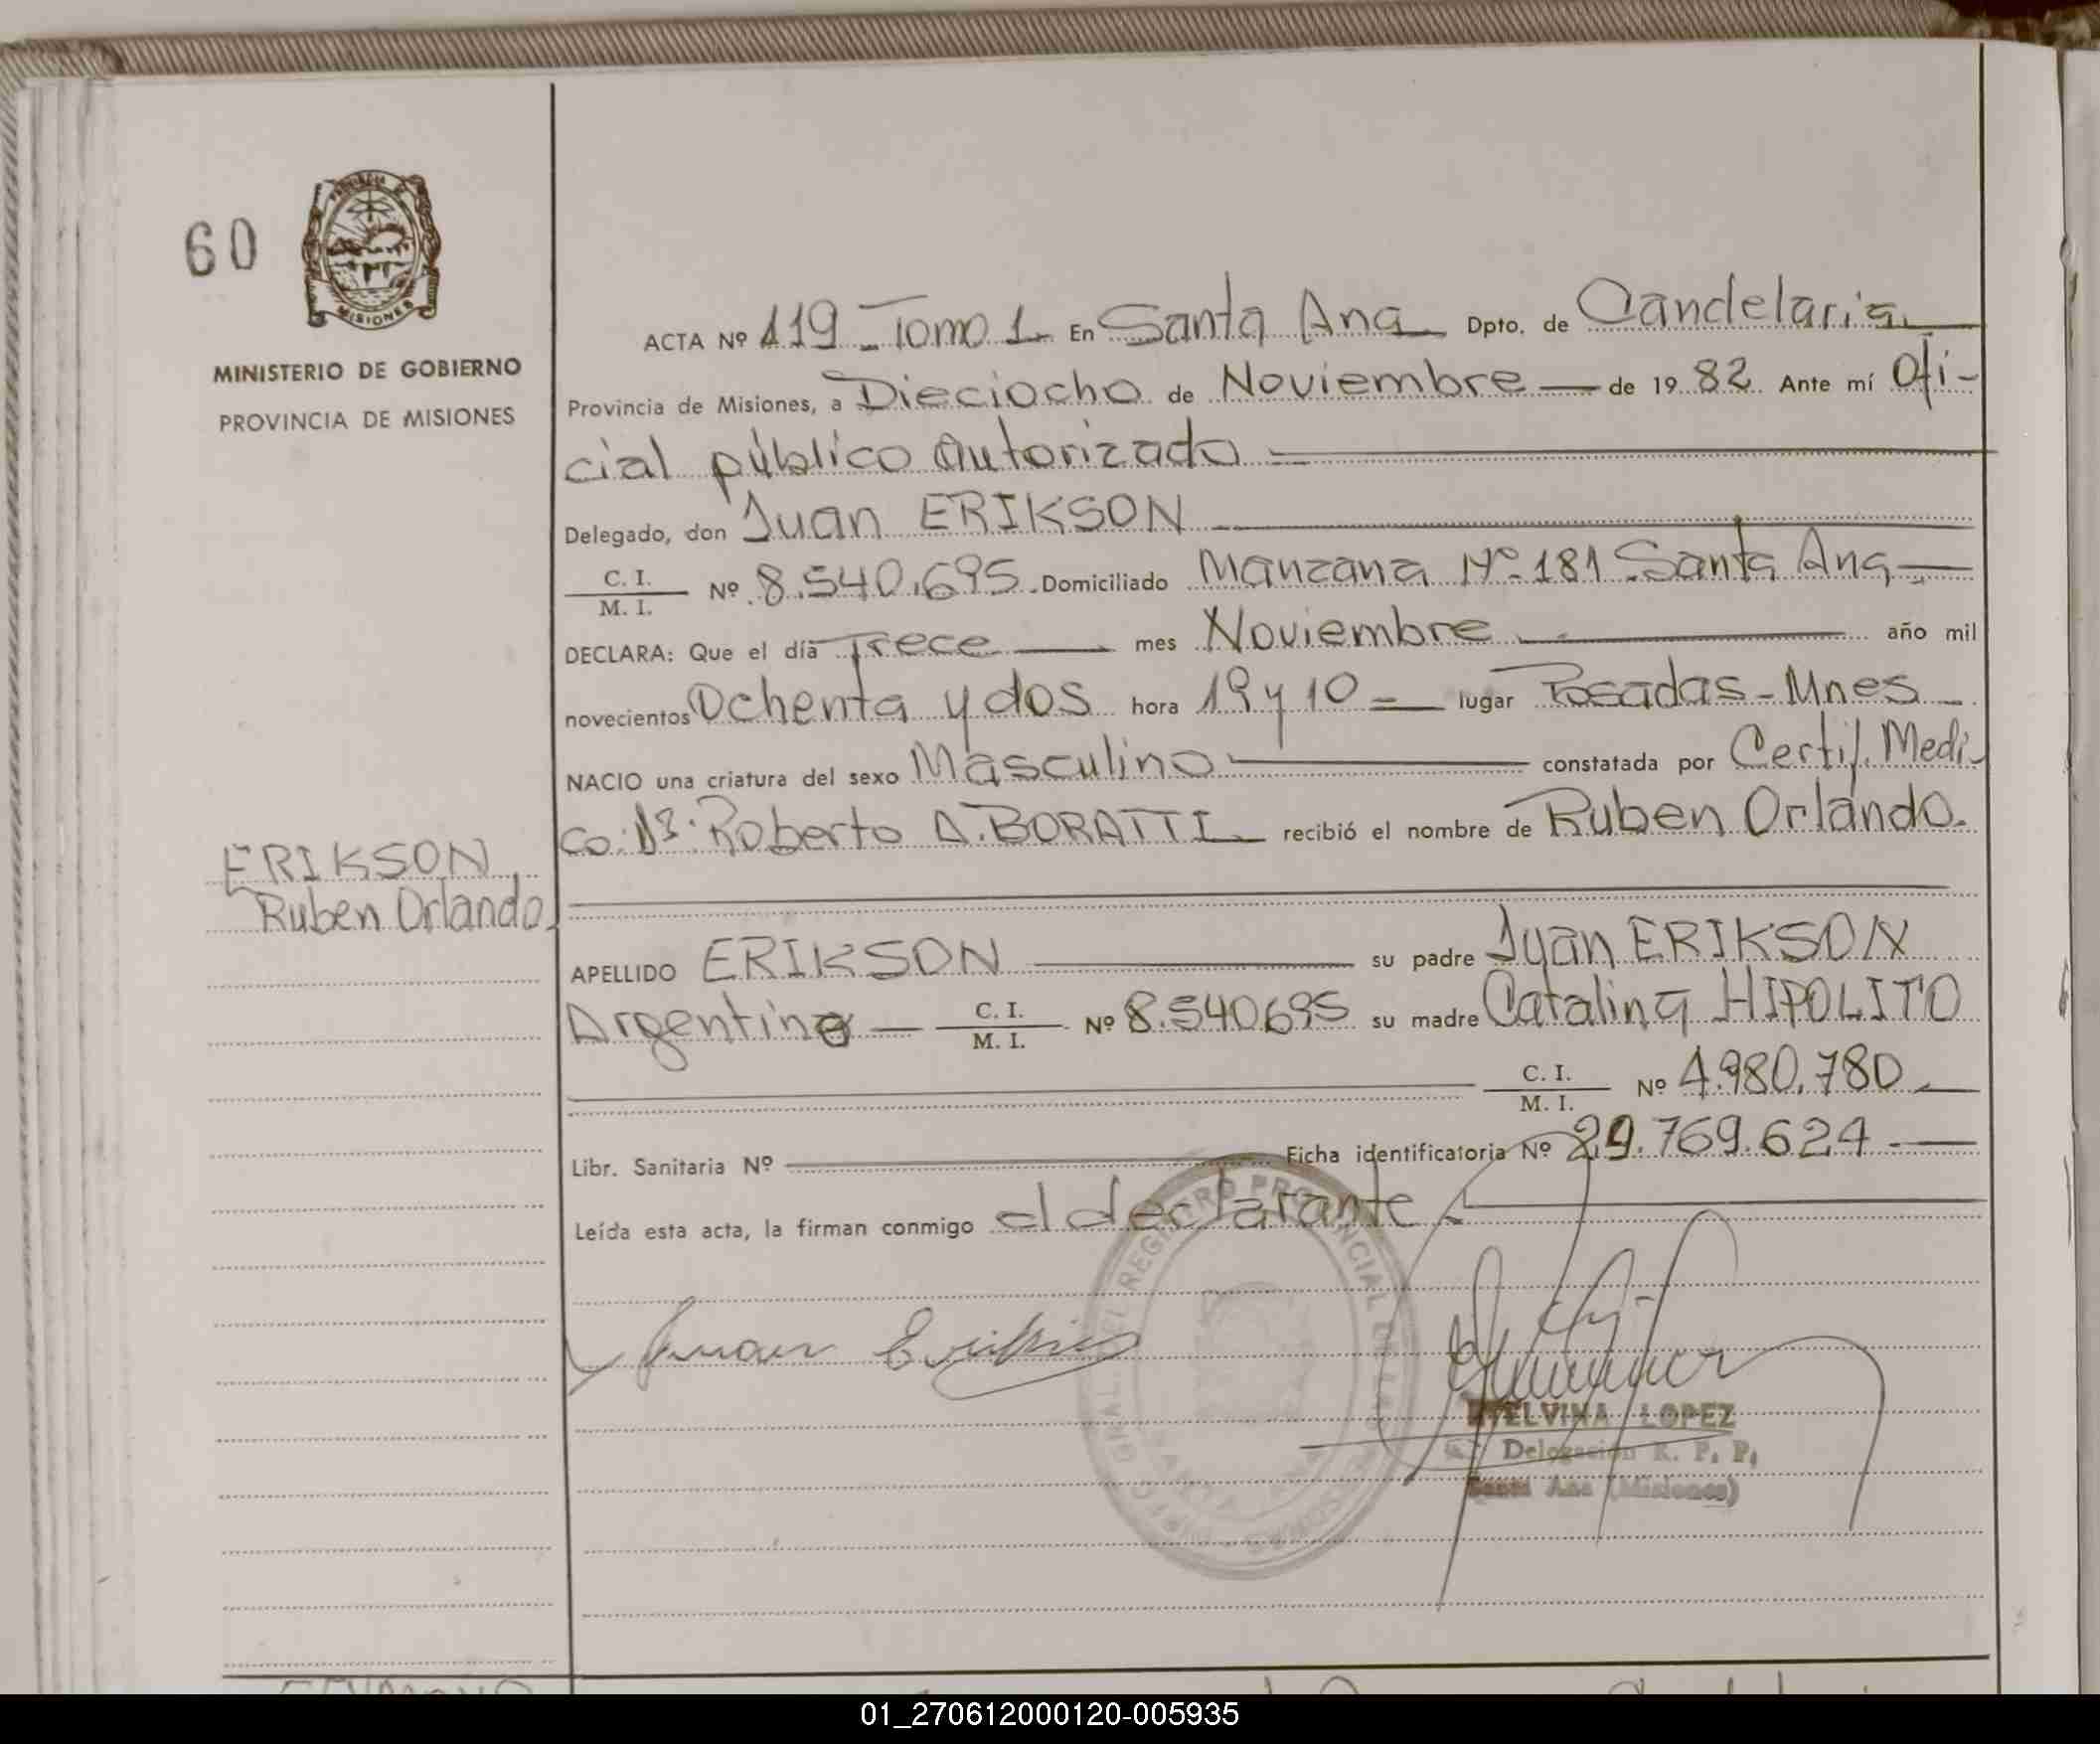 60
MISIONES
MINISTERIO DE GOBIERNO
PROVINCIA DE MISIONES
ACTA Nº 119 - Tomo 1 - En Santa Ana Dpto. de Candelaria
Provincia de Misiones, a Dieciocho de Noviembre — de 19 82 Ante mí Ofi-
cial público autorizado
Delegado, don Juan ERIKSON
C. I.
M. I. Nº 8.540.695. Domiciliado Manzana Nº 181 Santa Ana
DECLARA: Que el día Trece mes Noviembre año mil
novecientos Ochenta y dos hora 19 y 10 lugar Posadas - Mnes
NACIO una criatura del sexo Masculino constatada por Certif. Medi-
co: Dr. Roberto A. BORATTI recibió el nombre de Ruben Orlando.
ERIKSON
Ruben Orlando
APELLIDO ERIKSON su padre Juan ERIKSON
Argentino C. I.
M. I. Nº 8.540695 su madre Catalina HIPOLITO
C. I.
M. I. Nº 4.980.780
Libr. Sanitaria Nº Ficha identificatoria Nº 29.769.624
Leída esta acta, la firman conmigo el declarante
Juan Erikson
LOPEZ
Delegación R. P. P.
Santa Ana (Misiones)
01_270612000120-005935